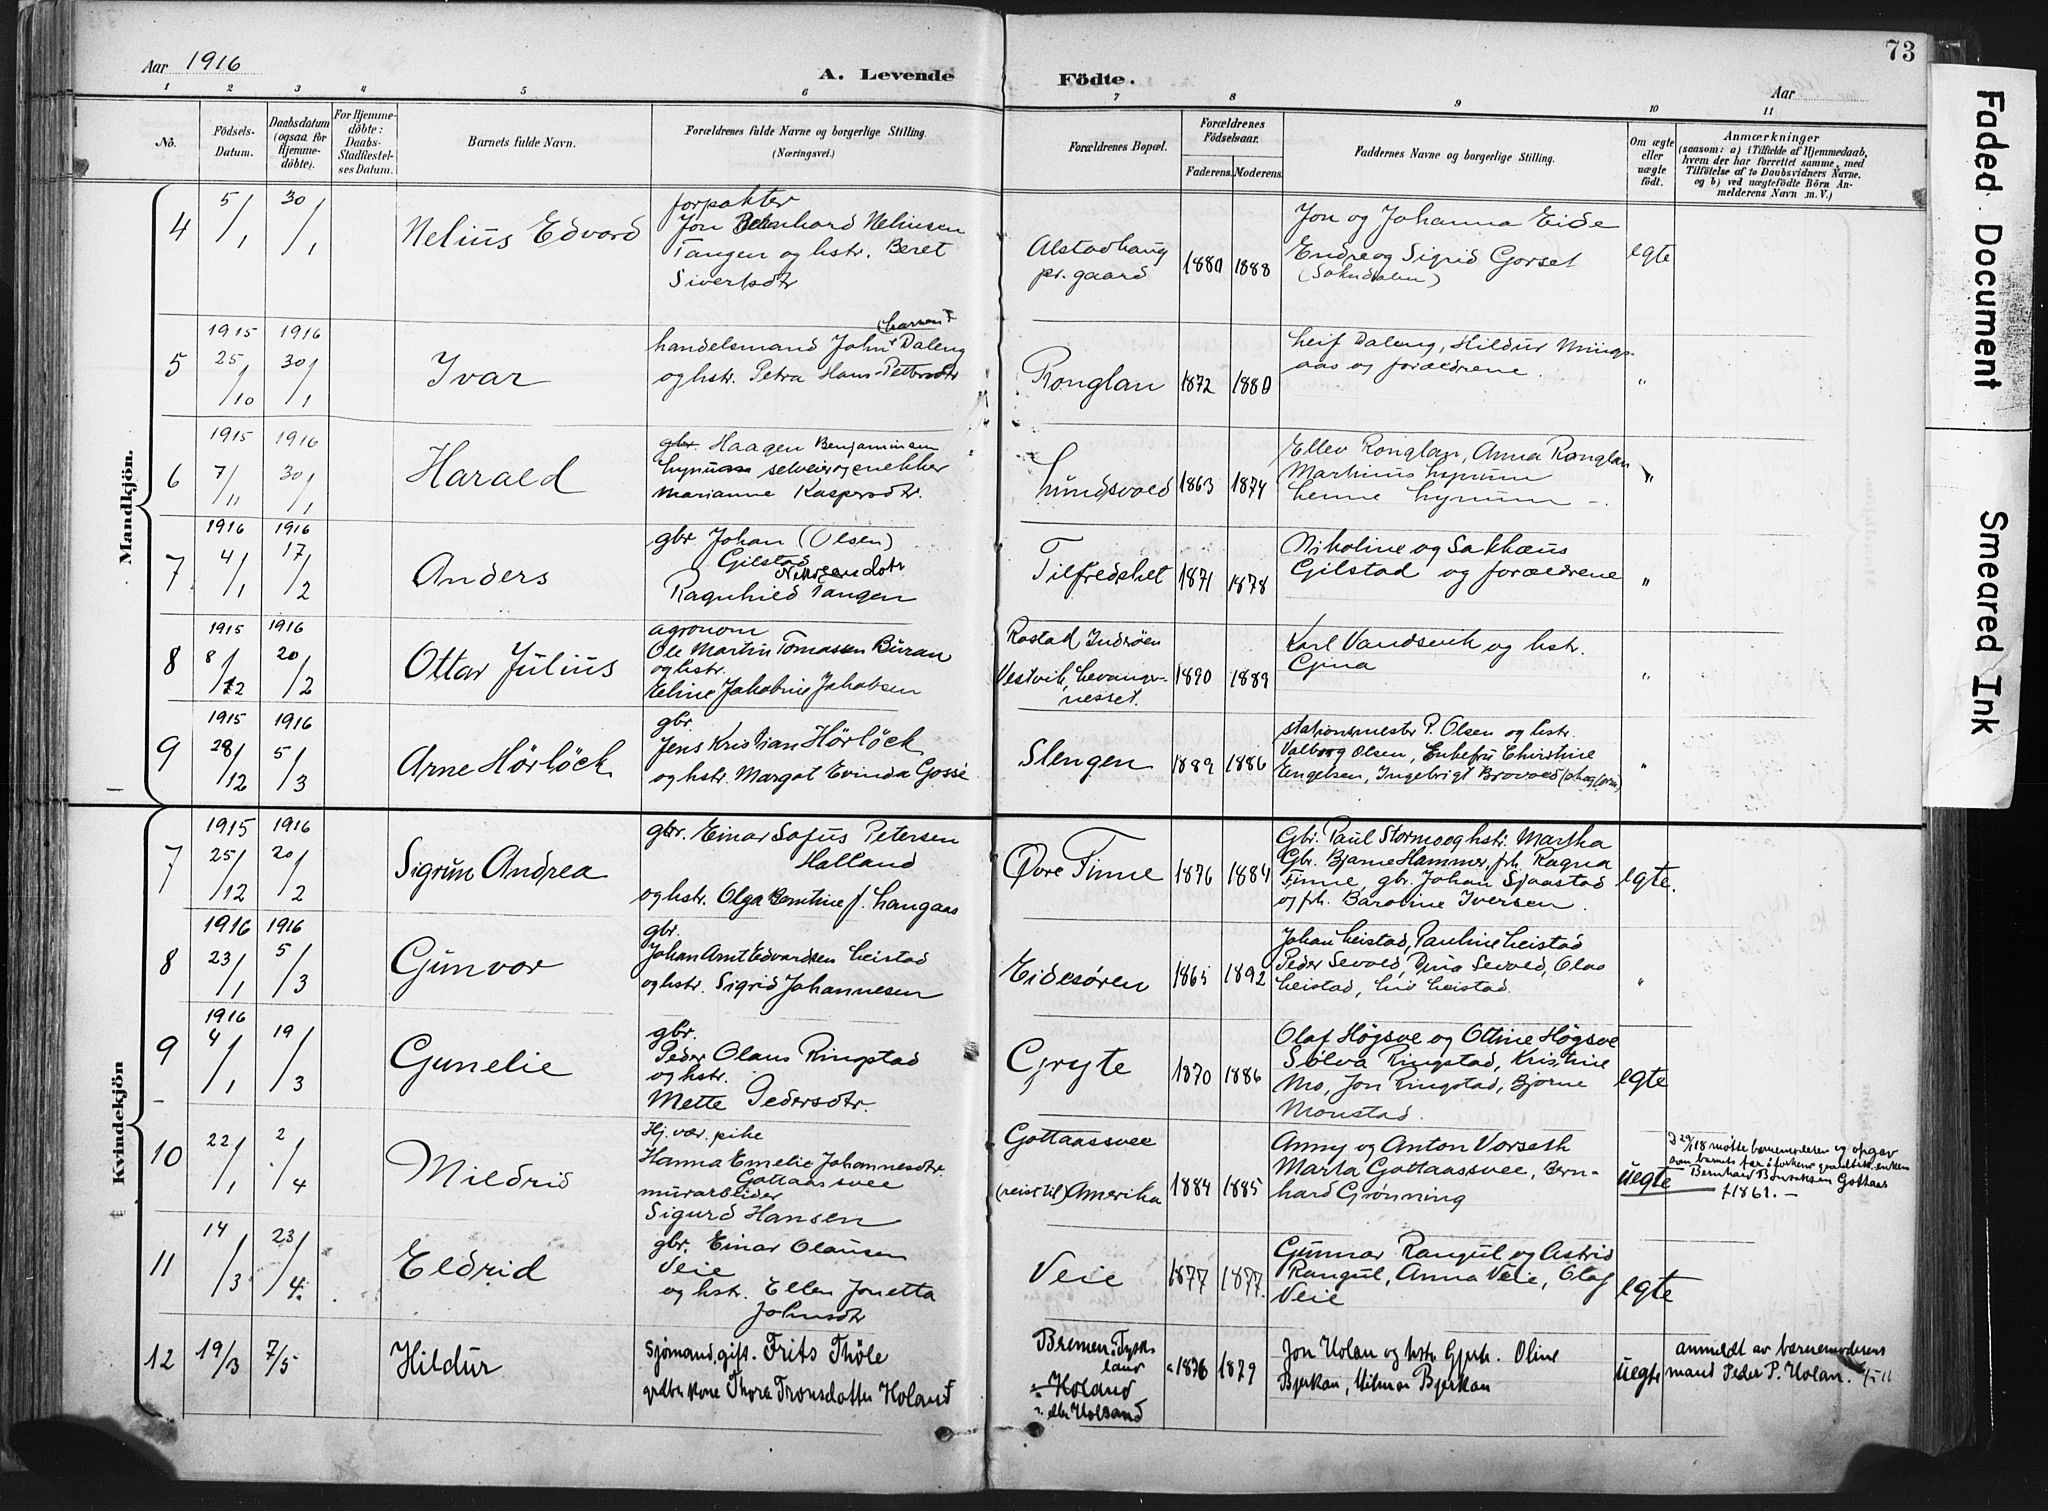 Aar 1916
A. Levende Födte.
73
Aar
1 2 3 4 5 6 7 8 9 10 11
No.
Födsels-Datum.
Daabsdatum (ogsaa for Hjemmedöbte).
For Hjemmedöbte: Daabs-Stadfæstelses Datum.
Barnets fulde Navn.
Forældrenes fulde Navne og borgerlige Stilling. (Næringsvei.)
Forældrenes Bopæl.
Forældrenes Födselsaar.
Faderens. Moderens.
Faddernes Navne og borgerlige Stilling.
Om ægte eller uægte födt.
Anmærkninger
(saasom: a) i Tilfælde af Hjemmedaab, hvem der har forrettet samme, med Tilföielse af to Daabsvidners Navne. og b) ved uægtefödte Börn Anmelderens Navn m. V.)
Mandkjön.
4 5/1 30/1 Nelius Edvard
forpakter
Jon Bernhard Neliusen
Tangen og hstr. Beret
Sivertsdtr
Alstadhaug
pr.gaard
1880 1888
Jon og Johanna Eide
Endre og Sigrid Gorset
(Soknedalen)
egte
5 1915 25/10 1916 30/1 Ivar
handelsmand John Daleng
(Larsen)
og hstr. Petra Hans Pettersdtr
Ronglan
1872 1880
Leif Daleng, Hildur
aas og forældrene.
"
6 1915 7/11 1916 30/1 Harald
gbr. Haagen Benjaminsen
Lynum selveier og enekker
Marianne Kaspersdtr.
Lundsvald
1863 1874
Ellev Ronglan, Anna Ronglan
Martinus Lynum
Lenne Lynum
"
7 1916 4/1 1916 17/2 Anders
gbr Johan (Olsen)
Gilstad
Ragnhild Tangen
Tilfredshet
1871 1878
Nikoline og Sakkæus
Gilstad og forældrene
"
8 1915 8/12 1916 20/2 Ottar Julius
agronom
Ole Martin Tomassen Buran
og hstr.
Eline Jakobine Jakobsen
Rostad Inderøen
Vestvik, Levangernesset.
1890 1889
Karl Vandsvik og hstr.
Gina
"
9 1915 28/12 1916 5/3 Arne Hörlöck
gbr.
Jens Kristian Hörlöck
og hstr. Margot Evinda Gosse
Slengen
1889 1886
stationsmester P. Olsen og hstr.
Valborg Olsen, Enkefru Christine
Engelsen, Ingebrigt Brovold
"
Kvindekjön
7 1915 25/12 1916 20/2 Sigrun Andrea
gbr. Einar Sofus Petersen
Halland
og hstr. Olga Berntine f. Langaas
Øvre Finne
1876 1884
Gbr. Paul Stormo og hstr. Martha
Gbr. Bjarne Hammer, frk. Ragna
Finne, gbr. Johan Sjaastad
og frk. Baroline Iversen.
egte.
8 1916 23/1 1916 5/3 Gunvor
gbr.
Johan Arnt Edvardsen Leistad
og hstr. Sigrid Johannesen
Eidesören
1865 1892
Johan Leistad, Pauline Leistad
Peder Sevold, Dina Sevold, Olao
Leistad, Liv Leistad.
"
9 1916 4/1 19/3 Gunelie
gbr.
Peder Olaus Ringstad
og hstr.
Mette Pedersdtr.
Gryte
1870 1886
Olaf Högsve og Ottine Högsve
Sölva Ringstad, Kristine
Mo, Jon Ringstad, Bjarne
Monstad.
egte
10 22/1 2/4 Mildrid
Hj.vær. pike
Hanna Emelie Johannesdtr.
Gottaassvee
murarbeider
Sigurd Hansen
Gottaassvee
(reist til) Amerika
1884 1885
Anny og Anton Vorseth
Marta Gottaassvee, Bernhard Grønning
uegte
D. 29/1 18 møtte barnemoderen og opgav
som barnets far
Bernhard Gottaas
f 1861. –
11 14/3 23/4 Eldrid
gbr. Einar Olausen
Veie
og hstr. Ellen Jonetta
Johnsdtr
Veie
1877 1877.
Gunnar Rangul og Astrid
Rangul, Anna Veie, Olaf
Veie
egte
12 19/3 7/5 Hildur
sjømand, gift. Frits Thöle
gårdbr.kone Thora Tronsdatter Holand
Bremen, Tyskland
Holand
eller Holsand
1876 1879
Jon Holan og hstr Gjert. Oline
Bjerkan, Hilmar Bjerkan
uegte
anmeldt av barnemoderens
mand Peder P. Holan.
Faded Document
Smeared Ink